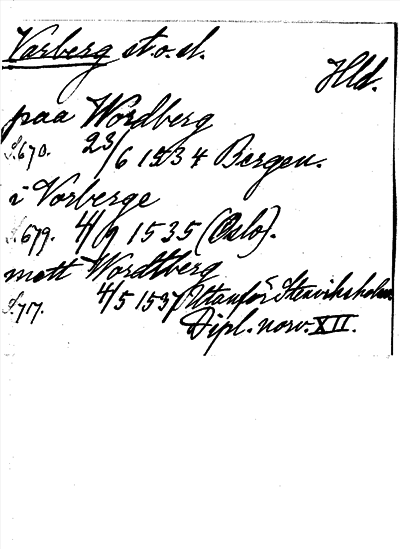 Varberg st. o. sl.
Hld.
paa Wordberg
S. 670. 23/6 1534 Bergen.
i Vorberge
S. 679. 4/9 1535 (Oslo).
mott Wordtberg
S. 717. 4/5 1537, Uttanför Stenviksholm.
Dipl. norv. XII.